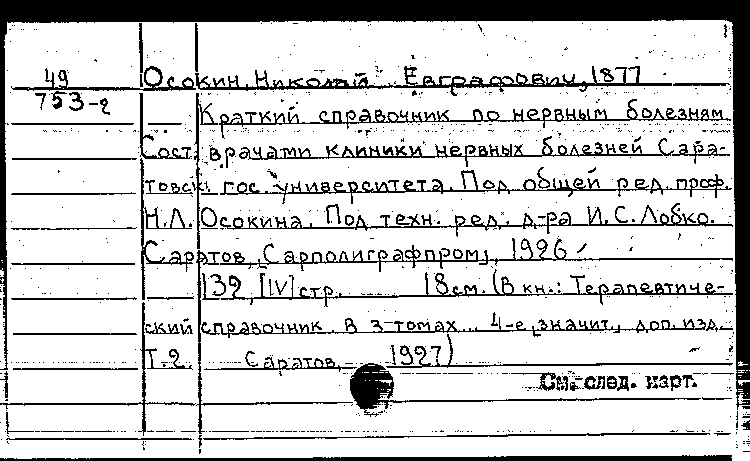 49 Осокин, Николай Евграфович, 1877
753-2 Краткий справочник по нервным болезням
Сост. врачами клиники нервных болезней Сара-
товск. гос. университета. Под общей ред. проф.
Н.Л. Осокина. Под техн. ред. д-ра И.С. Лобко.
Саратов, Сарполиграфпром, 1926
132, [IV] стр. 18 см. (В кн.: Терапевтиче-
ский справочник. В 3 томах... 4-е, значит, доп. изд.
Т. 2. Саратов, 1927)
См. след. карт.